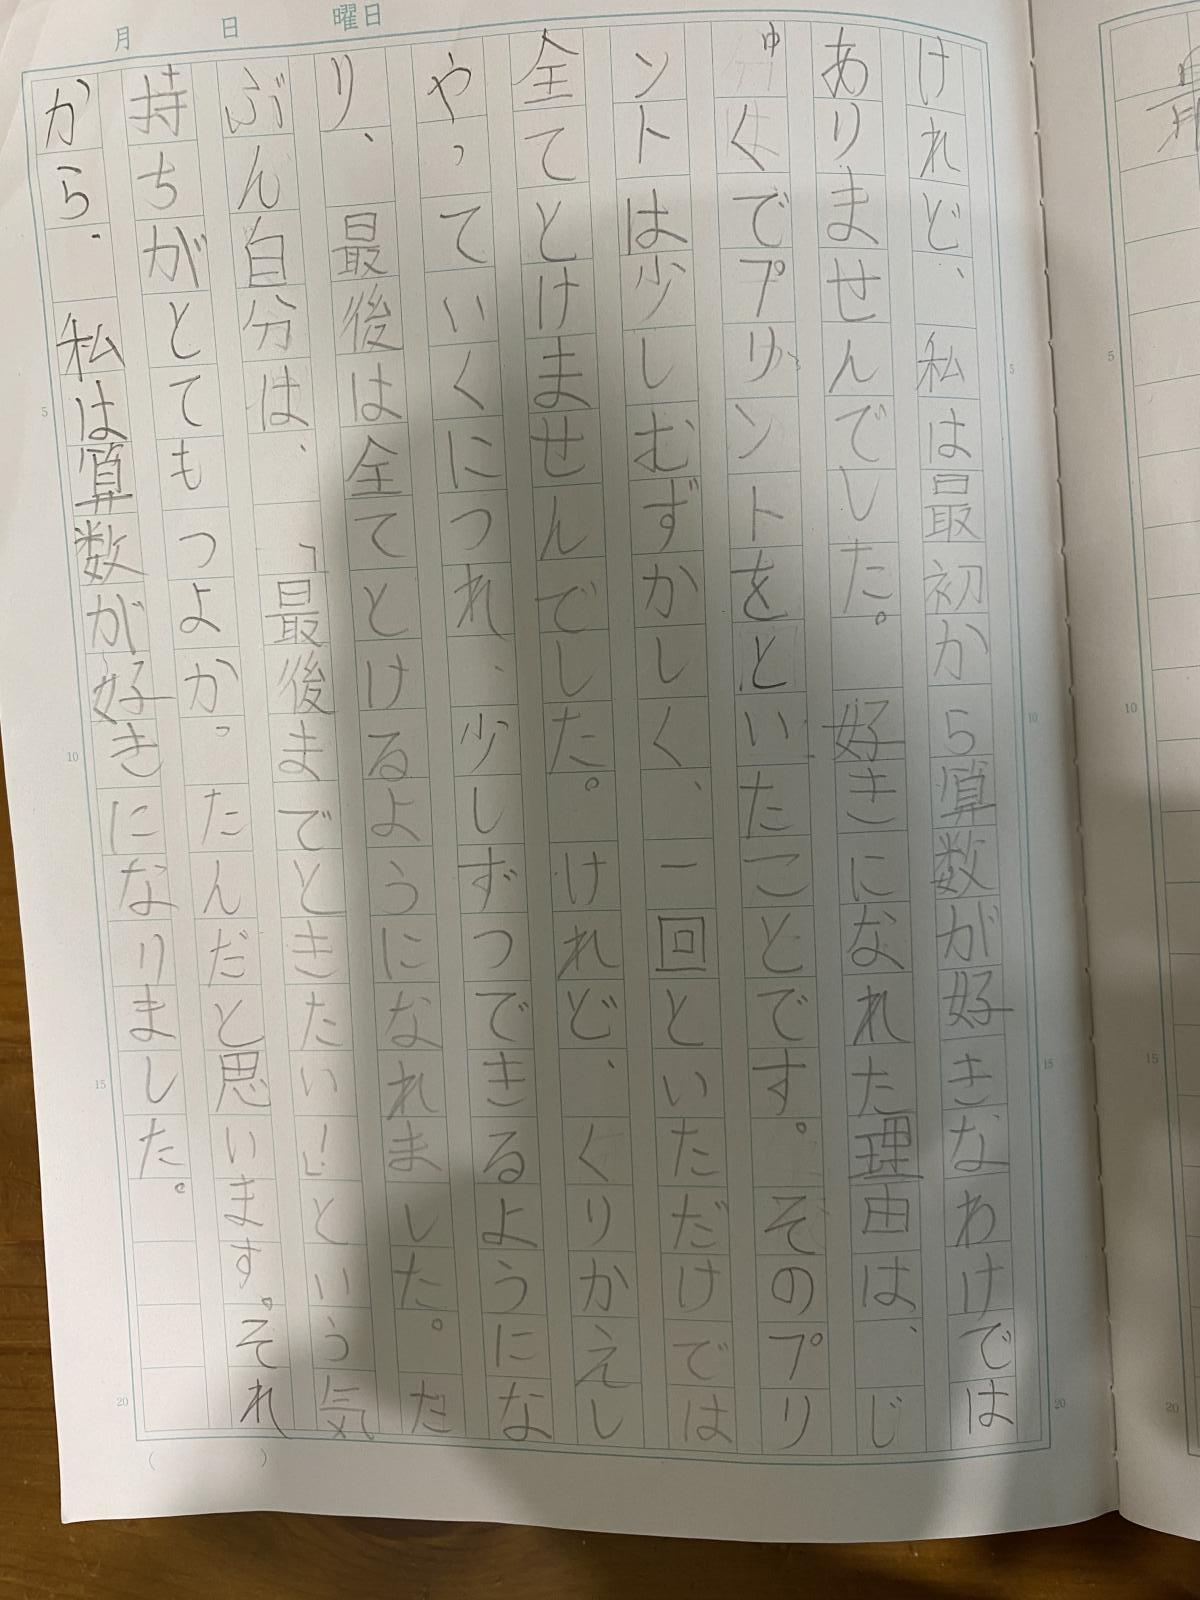 月 日 曜日
けれど、私は最初から算数が好きなわけでは
ありませんでした。好きになれた理由は、じ
ゅくでプリントをといたことです。そのプリ
ントは少しむずかしく、一回といただけでは
全てとけませんでした。けれど、くりかえし
やっていくにつれ、少しずつできるようにな
り、最後は全てとけるようになれました。た
ぶん自分は、「最後まできたい!」という気
持ちがとてもつよかったんだと思います。それ
から、私は算数が好きになりました。
5
10
15
20
5
10
15
20
5
10
15
20